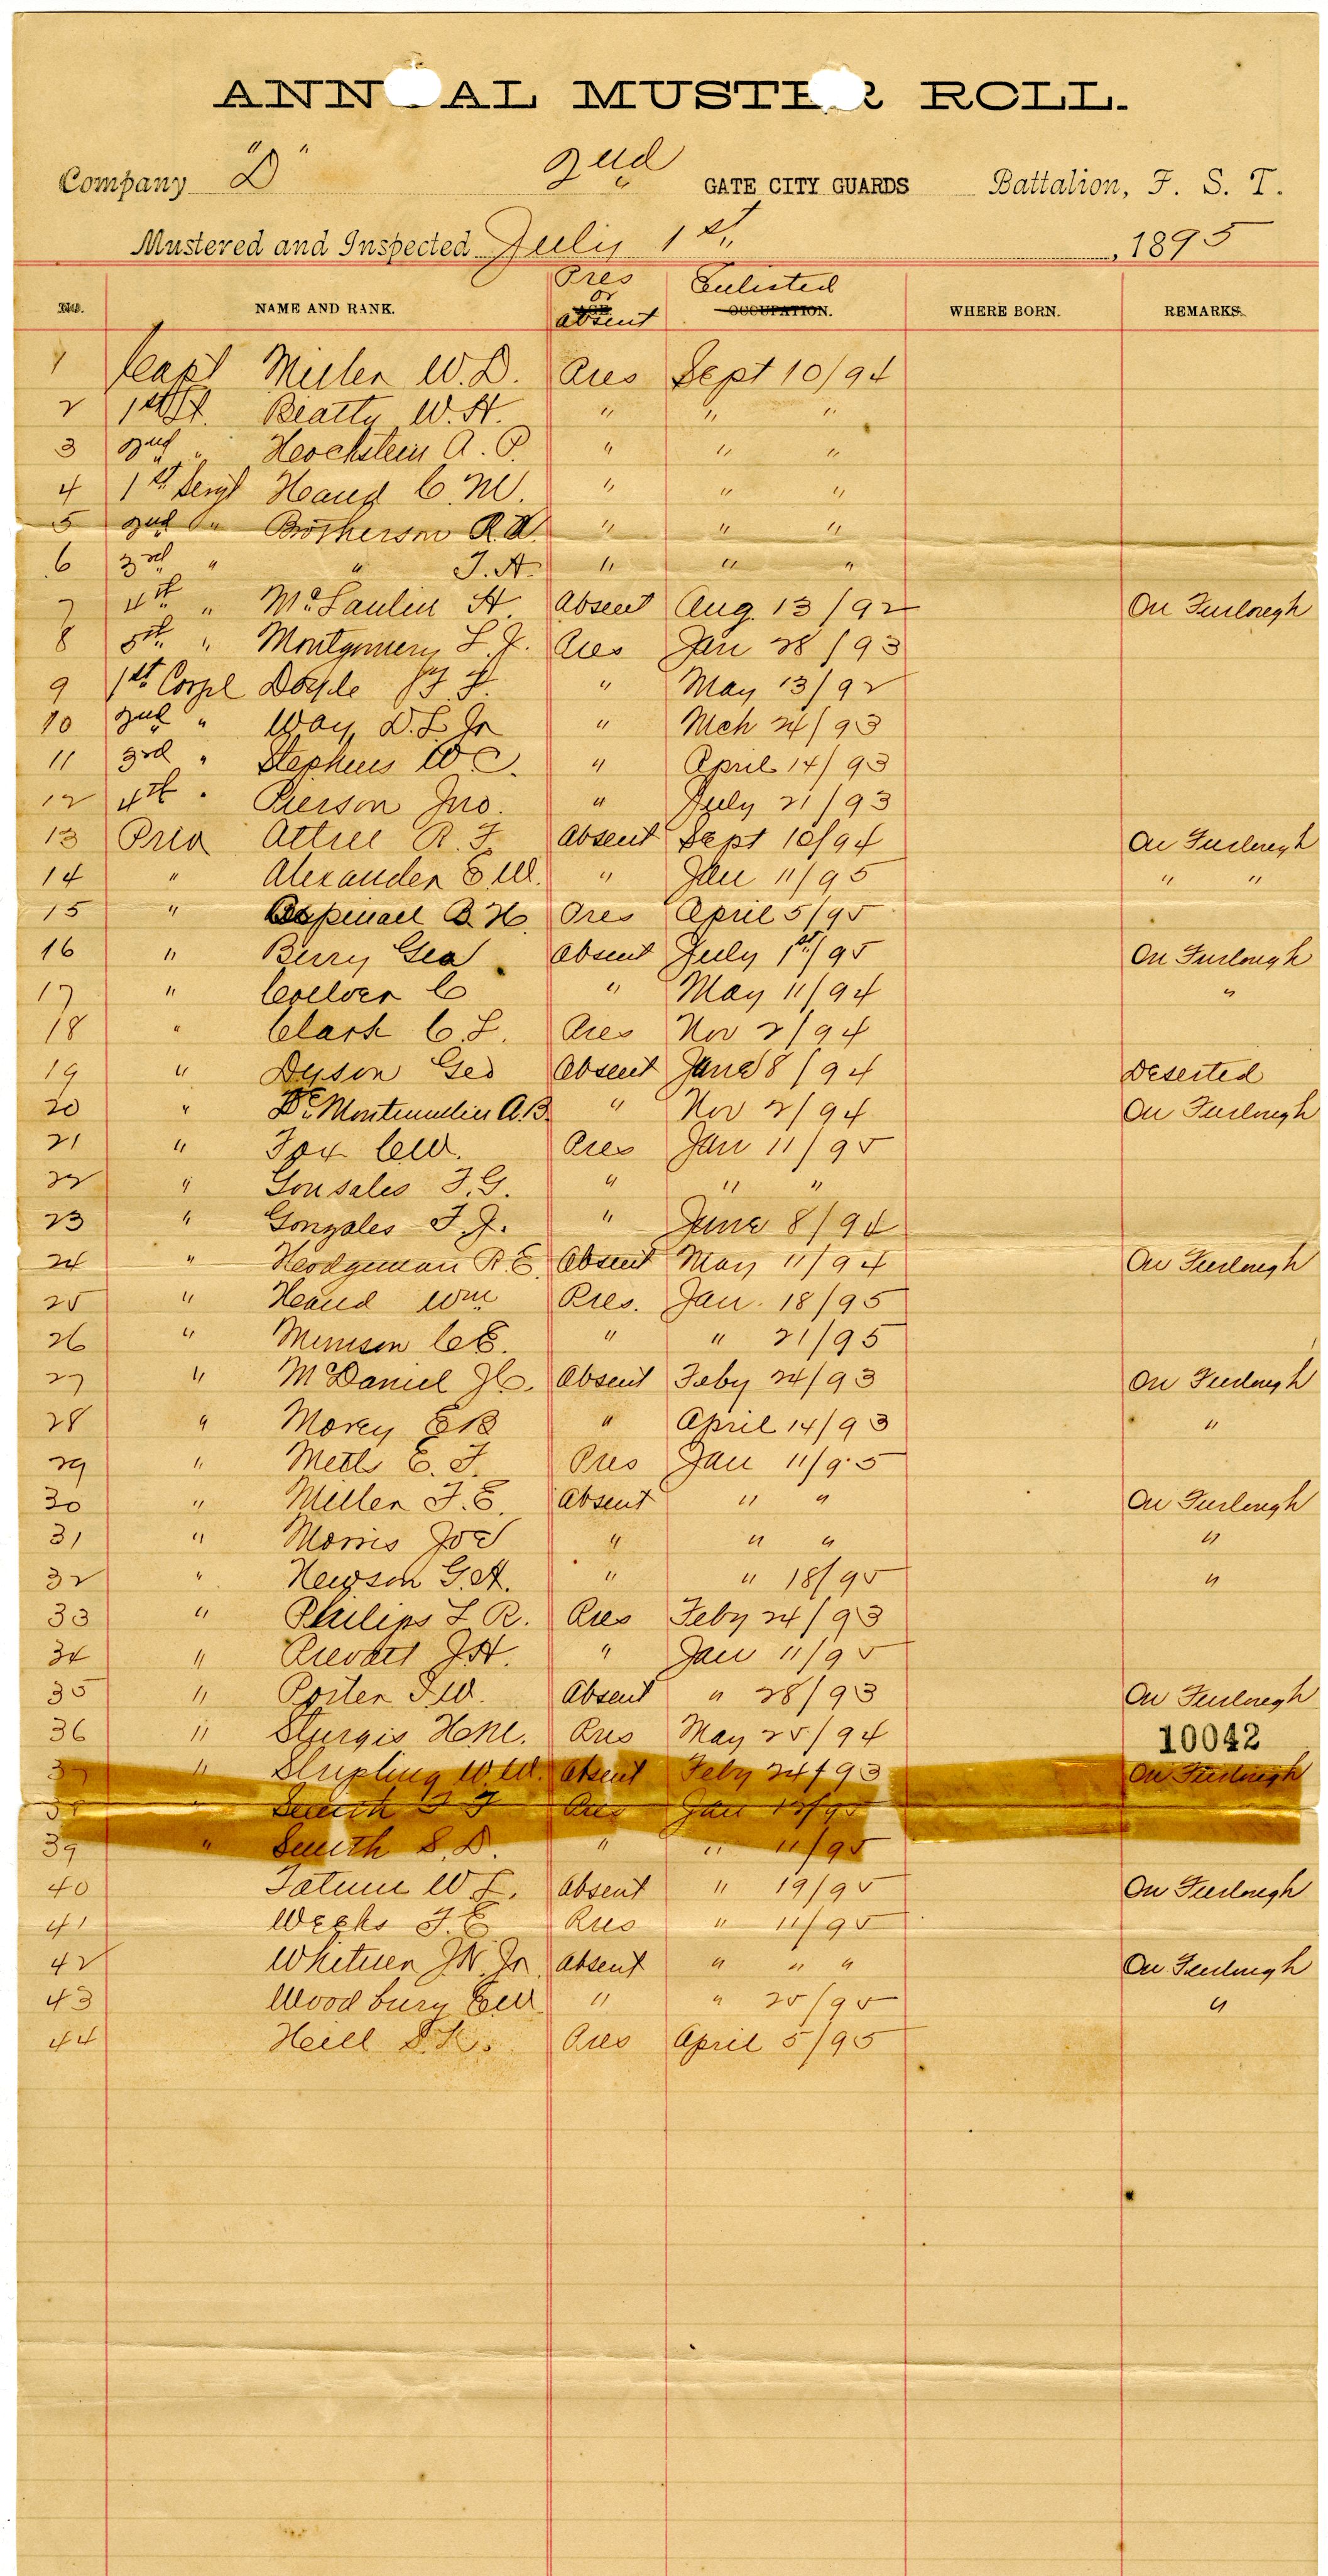 ANN AL MUSTER ROLL.
Company "D" 2nd GATE CITY GUARDS Battalion, F. S. T.
Mustered and Inspected July 1st, 1895
NO. NAME AND RANK. Pres or absent Enlisted OCCUPATION. WHERE BORN. REMARKS.
1 Capt Miller W. D. Pres Sept 10/94
2 1st Lt. Beatty W. H. " " "
3 2nd " Hockstein A. P. " " "
4 1st Sergt Hand C. M. " " "
5 2nd " Brotherson R. " " "
6 3rd " " T. A. " " "
7 4th " H. Absent Aug. 13/92 On Furlough
8 5th " Montgomery L. J. Pres Jan 28/93
9 1st Corpl Doyle " May 13/92
10 2nd " Way, D. L. Jr " Mch 24/93
11 3rd " Stephens W C. " April 14/93
12 4th " Pierson Jno. " July 21/93
13 Priv Attree R. F. Absent Sept 10/94 On Furlough
14 " Alexander E. W. " Jan 11/95 " "
15 " Aspinall B. H. Pres April 5/95
16 " Berry Geo Absent July 1st/95 On Furlough
17 " C " May 11/94 "
18 " Clark C. L. Pres Nov 2/94
19 " Dyson Geo Absent June 8/94 Deserted
20 " A.B. " Nov 2/94 On Furlough
21 " Fox C.W. Pres Jan 11/95
22 " Gonsales F. G. " " "
23 " Gonzales F. J. " June 8/94
24 " Hodgeman R. E. Absent May 11/94 On Furlough
25 " Hand Wm Pres. Jan. 18/95
26 " C E. " " 21/95
27 " McDaniel J C. Absent Feby 24/93 On Furlough
28 " Morey E B " April 14/93 "
29 " E. F. Pres Jan 11/95
30 " Miller F. E. Absent " " On Furlough
31 " Morris Joe " " " "
32 " Newson G. A. " " 18/95 "
33 " Philips L R. Pres Feby 24/93
34 " Prevatt J. H. " Jan 11/95
35 " Porter T. W. Absent " 28/93 On Furlough
36 " Sturgis H. M. Pres May 25/94
10042
37 " Stripling W. W. Absent Feby 24/93 On Furlough
38 " Smith F F Pres Jan 95
39 " Smith S. D. " " 11/95
40 Tatum W L. Absent " 19/95 On Furlough
41 Weeks F. E Pres " 11/95
42 Whitner J. N. Jr Absent " " " On Furlough
43 Woodbury E W " " 25/95 "
44 Heill S. K. Pres April 5/95